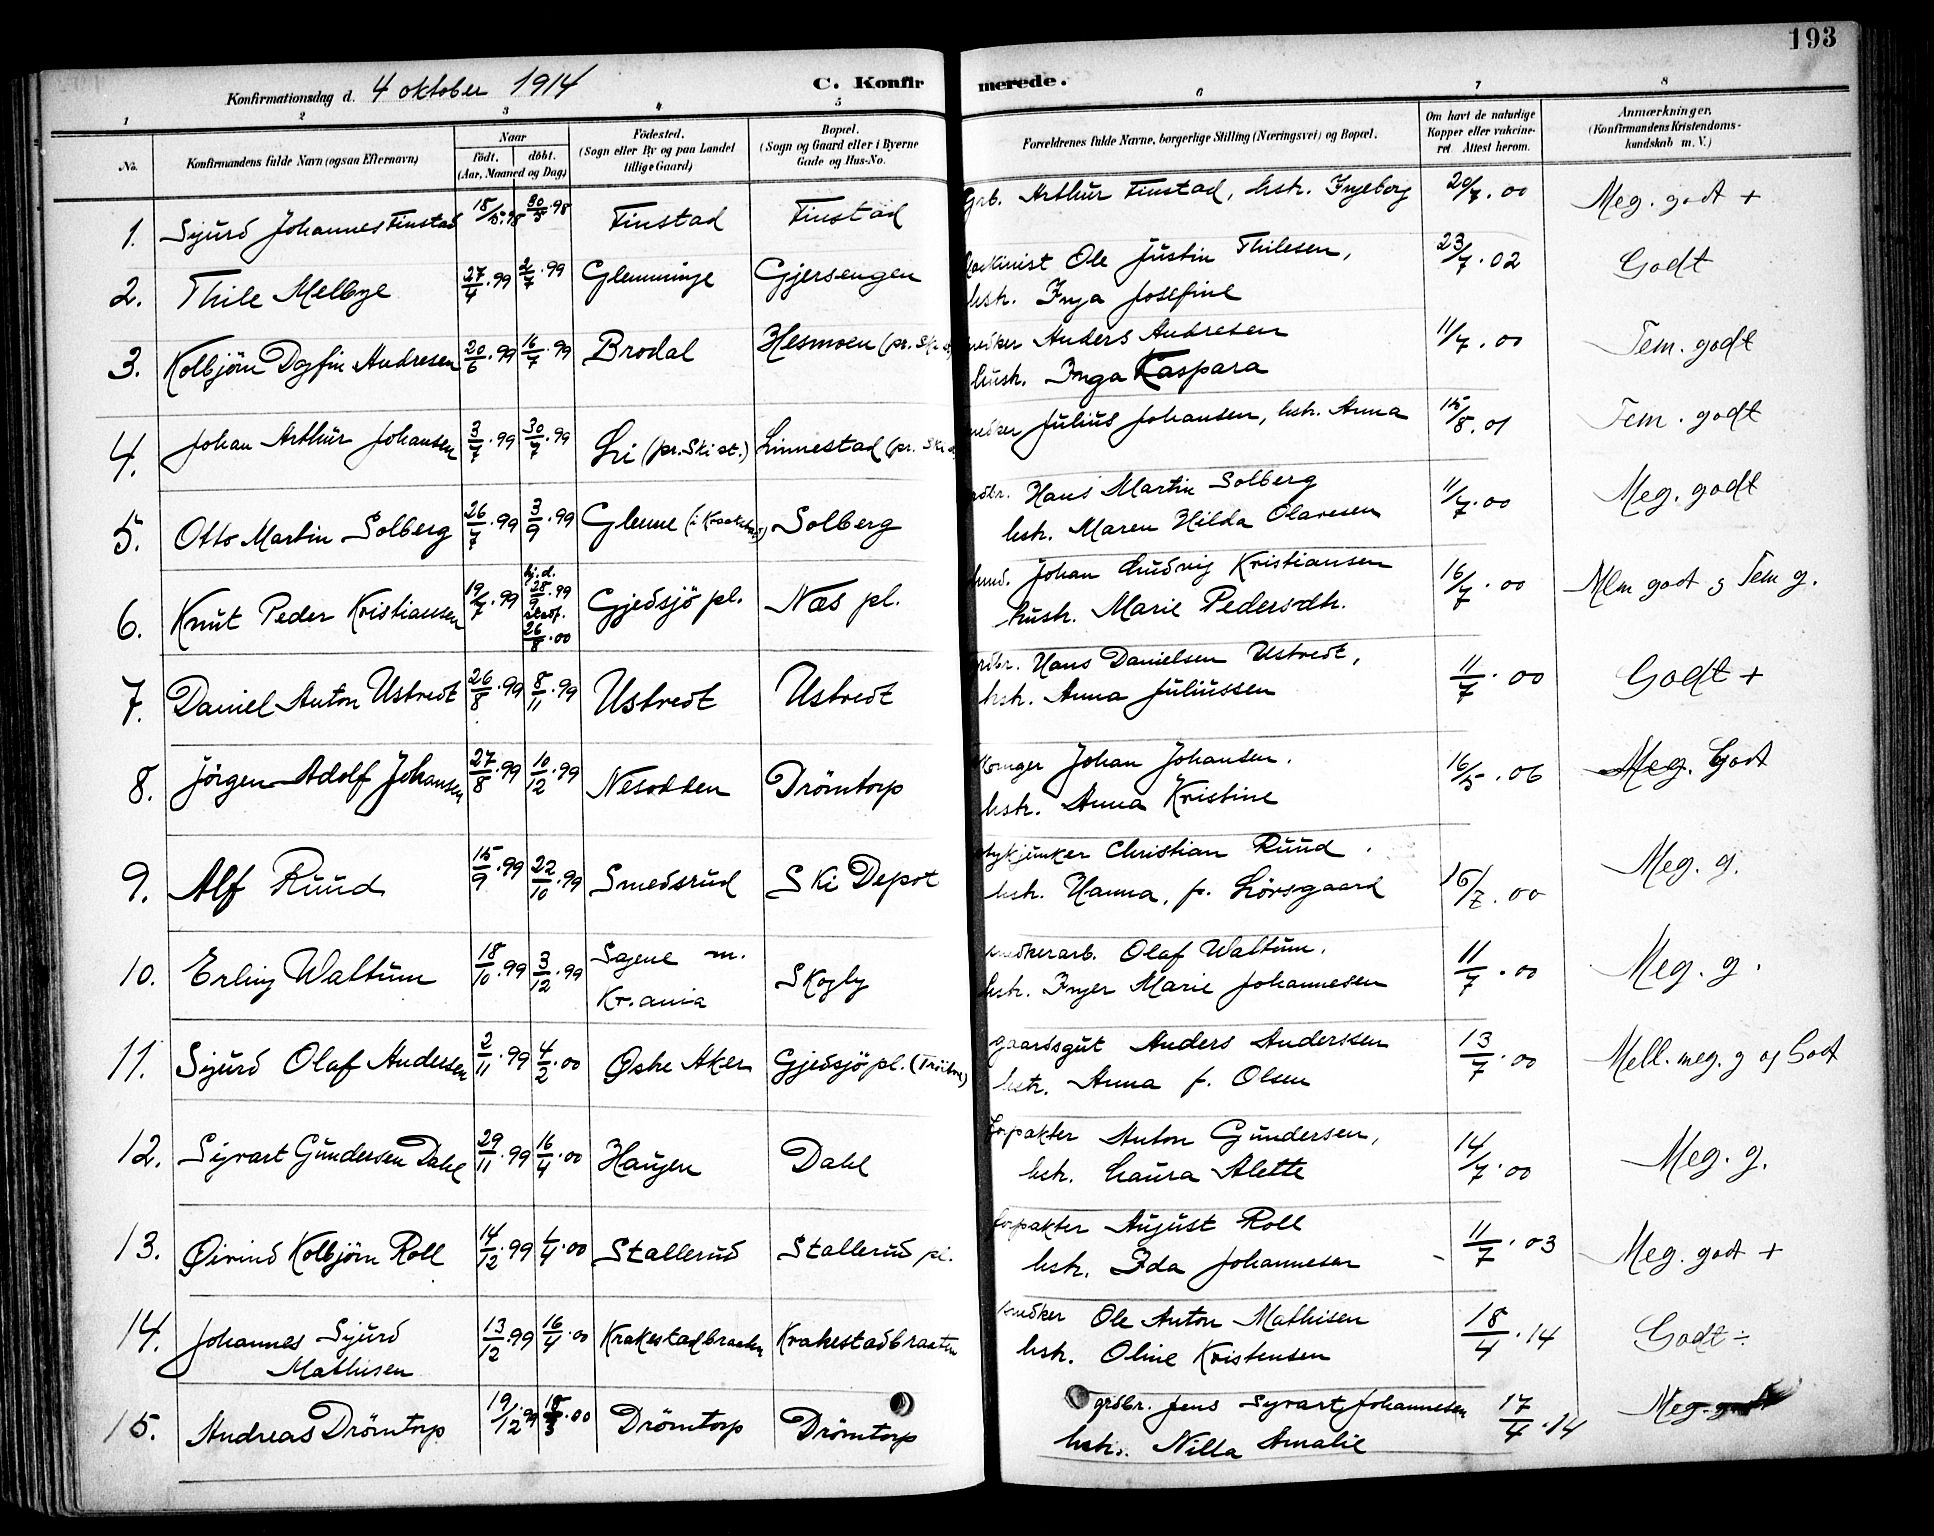 193
Konfirmationsdag d. 4 oktober 1914 C. Konfirmerede.
1 2 3 4 5 6 7 8
No. Konfirmandens fulde Navn (ogsaa Efternavn) Naar födt. döbt. (Aar, Maaned og Dag) Födested. (Sogn eller By og paa Landet tillige Gaard) Bopæl. (Sogn og Gaard eller i Byerne Gade og Hus-No. Forældrenes fulde Navne, borgerlige Stilling (Næringsvei) og Bopæl. Om havt de naturlige Kopper eller vakcineret. Attest herom. Anmærkninger. (Konfirmandens Kristendomskundskab m. V.)
1. Sigurd Johannes Finstad 18/5.98 30/5.98 Finstad Finstad Grb. Arthur Finstad, hstr. Ingeborg 20/7.00 Meg. godt +
2. Thile Melbye 27/4.99 2/7.99 Glemminge Gjersengen Maskinist Ole Justin Thilesen, 23/7.02 Godt
hstr. Inga Josefine
3. Kolbjörn Dagfin Andresen 20/6.99 16/7.99 Brodal Hesmoen (pr. Ski st. snedker Anders Andresen 11/7.00 Tem. godt
hustr. Inga Kaspara
4. Johan Arthur Johansen 3/7.99 30/7.99 Li (pr. Ski st.) Linnestad (pr. Ski snedker Julius Johansen, hstr. Anna 15/8.01 Tem. godt
5. Otto Martin Solberg 26/7.99 3/9.99 Glenne (i Kraakstad) Solberg grdbr. Hans Martin Solberg 11/7.00 Meg. godt
hstr. Maren Hilda Olavesen
6. Knut Peder Kristiansen 19/7.99 hj.d. 28/7.99 stadf. 26/8.00 Gjedsjö pl. Næs pl. Johan Ludvig Kristiansen 16/7.00 Mlm godt og Tem g.
hustr. Marie Pedersdtr.
7. Daniel Anton Ustvedt 26/8.99 8/11.99 Ustvedt Ustvedt grdbr. Hans Danielsen Ustvedt, 11/7.00 Godt +
hstr. Anna Juliussen
8. Jörgen Adolf Johansen 27/8.99 10/12.99 Nesodden Drömtorp Johan Johansen. 16/5.06 Meg. Godt
hstr. Anna Kristine
9. Alf Ruud 15/9.99 22/10.99 Smedsrud Ski Depot stykjunker Christian Ruud. 16/7.00 Meg. g.
hstr. Hanna, f. Lörsgaard
10. Erling Waltum 18/10.99 3/12.99 Sagene m. Kr.ania Skogly snedkerarb. Olaf Waltum. 11/7.00 Meg. g.
hstr. Inger Marie Johannesen
11. Sigurd Olaf Andersen 2/11.99 4/2.00 Østre Aker Gjedsjö pl. gaardsgut Anders Anderssen 13/7.00 Mell. meg. g og Godt
hstr. Anna f. Olsen
12. Sigvart Gundersen Dahl 29/11.99 16/4.00 Haugen Dahl Forpakter Anton Gundersen, 14/7.00 Meg. g.
hstr. Laura Alette
13. Øivind Kolbjörn Roll 14/12.99 1/4.00 Stallerud Stallerud pl. forpakter August Roll 11/7.03 Meg. godt +
hstr. Ida Johannesen
14. Johannes Sigurd 13/12.99 16/4.00 Krakestadbraaten Krakestadbraaten snedker Ole Anton Mathisen 18/4.14 Godt ÷
Mathisen hstr. Oline Kristensen
15. Andreas Drömtorp 19/12.99 18/3.00 Drömtorp Drömtorp grdbr. Jens Syvart Johannesen 17/4.14 Meg. godt
hstr. Nilla Amalie